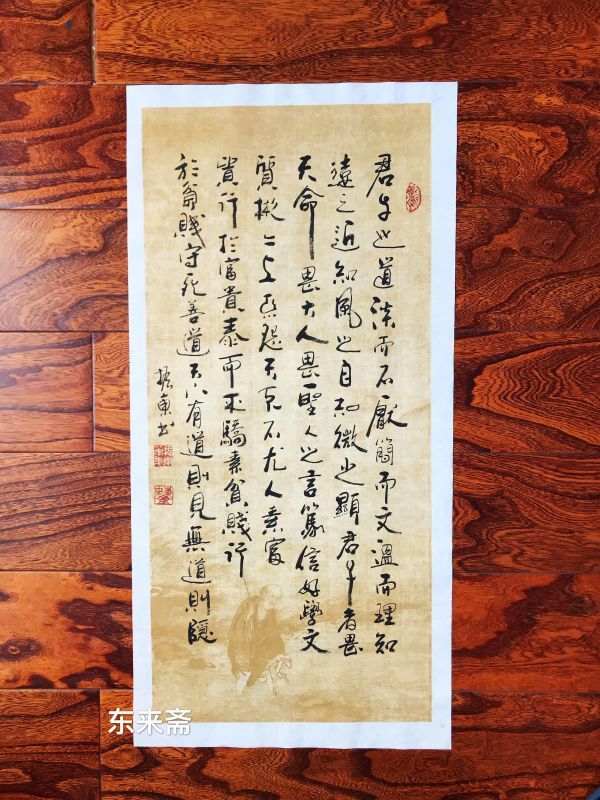 君子之道淡而不厭簡而文溫而理知
遠之近知風之自知微之顯君子者畏
天命畏大人畏聖人之言篤信好學文
質彬々上無怨天下不尤人素富
貴行於富貴泰而不驕素貧賤行
於貧賤守死善道天下有道則見無道則隱
振東書
东来斋